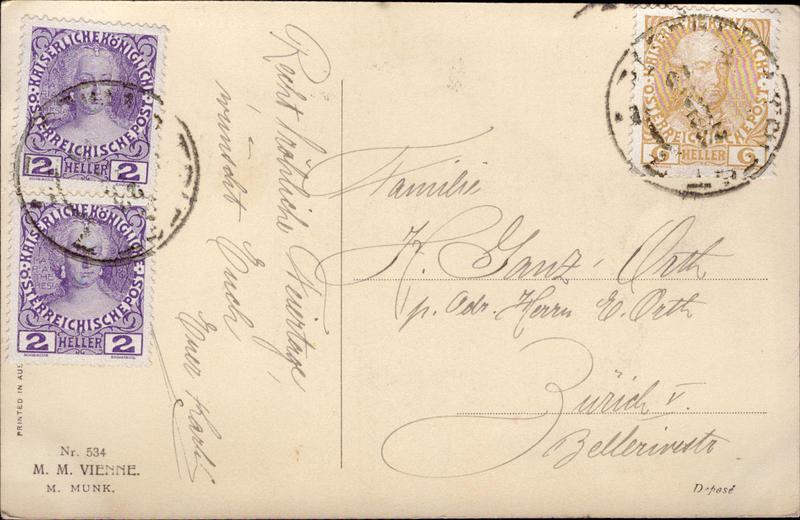 KAISERLICHE KÖNIGLICHE
ÖSTERREICHISCHE POST
2 HELLER 2
KAISERLICHE KÖNIGLICHE
ÖSTERREICHISCHE POST
2 HELLER 2
KAISERLICHE KÖNIGLICHE
ÖSTERREICHISCHE POST
HELLER
Recht fröhliche Feiertage,
wünscht Euch
Euer Karl!
Familie
K. Ganz-Orth
p. Adr. Herrn E. Orth
Zürich V.
Bellerivestr
PRINTED IN AUS
Nr. 534
M. M. VIENNE.
M. MUNK.
Déposé